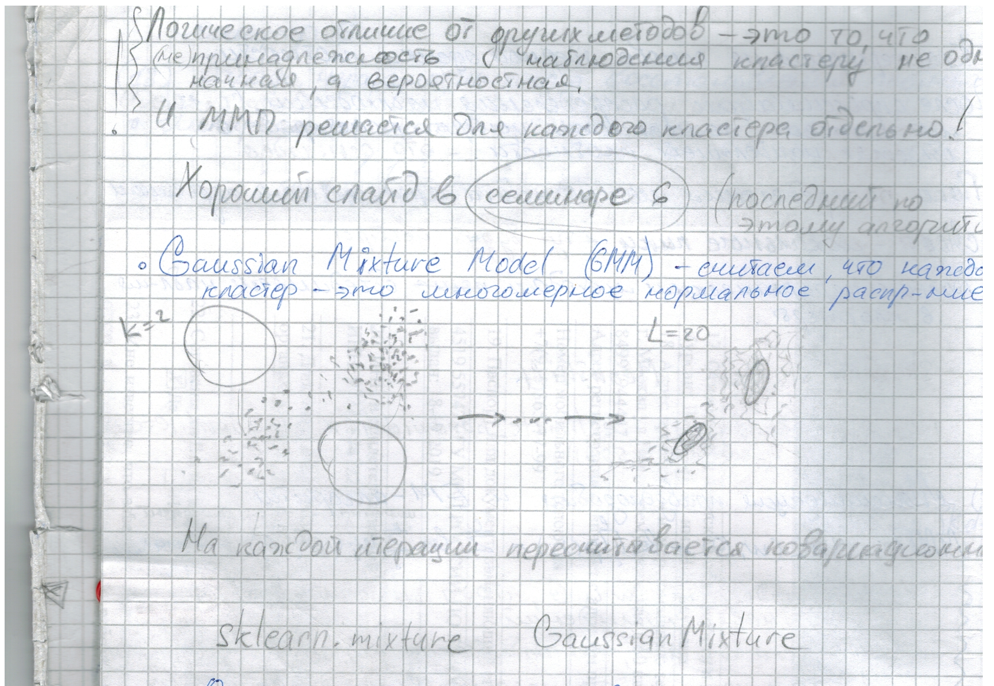 Логическое отличие от других методов – это то, что
(не)принадлежность наблюдения кластеру не одн
начная, а вероятностная.
И ММП решается для каждого кластера отдельно!
Хороший слайд в семинаре 6 (последний по
этому алгоритм
• Gaussian Mixture Model (GMM) – считаем, что каждо
кластер – это многомерное нормальное распр-ние
K=2
L=20
На каждой итерации пересчитывается ковариационн
sklearn.mixture GaussianMixture